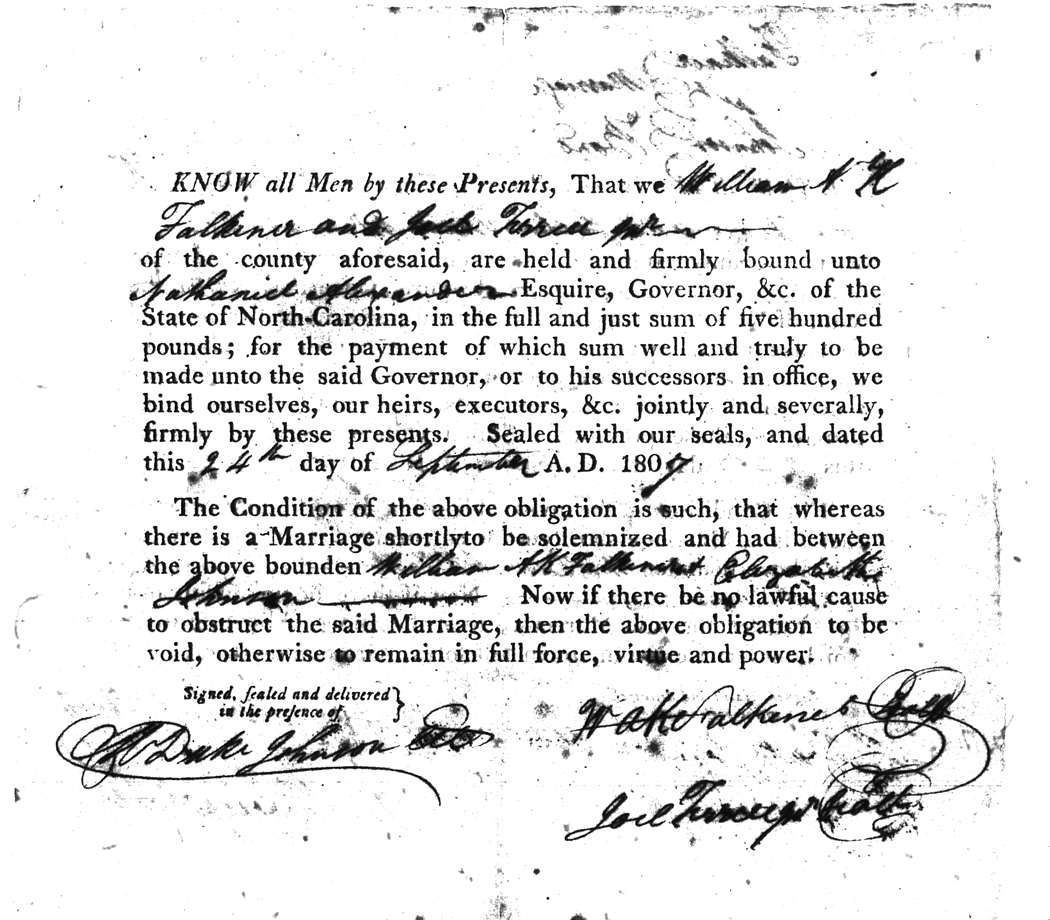 KNOW all Men by these Presents, That we William A K
Falkener and Joel Terrell jnr
of the county aforesaid, are held and firmly bound unto
Nathaniel Alexander Esquire, Governor, &c. of the
State of North-Carolina, in the full and just sum of five hundred
pounds; for the payment of which sum well and truly to be
made unto the said Governor, or to his successors in office, we
bind ourselves, our heirs, executors, &c. jointly and severally,
firmly by these presents. Sealed with our seals, and dated
this 24th day of September A. D. 1807
The Condition of the above obligation is such, that whereas
there is a Marriage shortlyto be solemnized and had between
the above bounden William A K Falkener & Elizabeth
Johnson Now if there be no lawful cause
to obstruct the said Marriage, then the above obligation to be
void, otherwise to remain in full force, virtue and power.
Signed, sealed and delivered }
in the presence of
Drake Johnson
W A K Falkener Seal
Joel Terrell jnr Seal